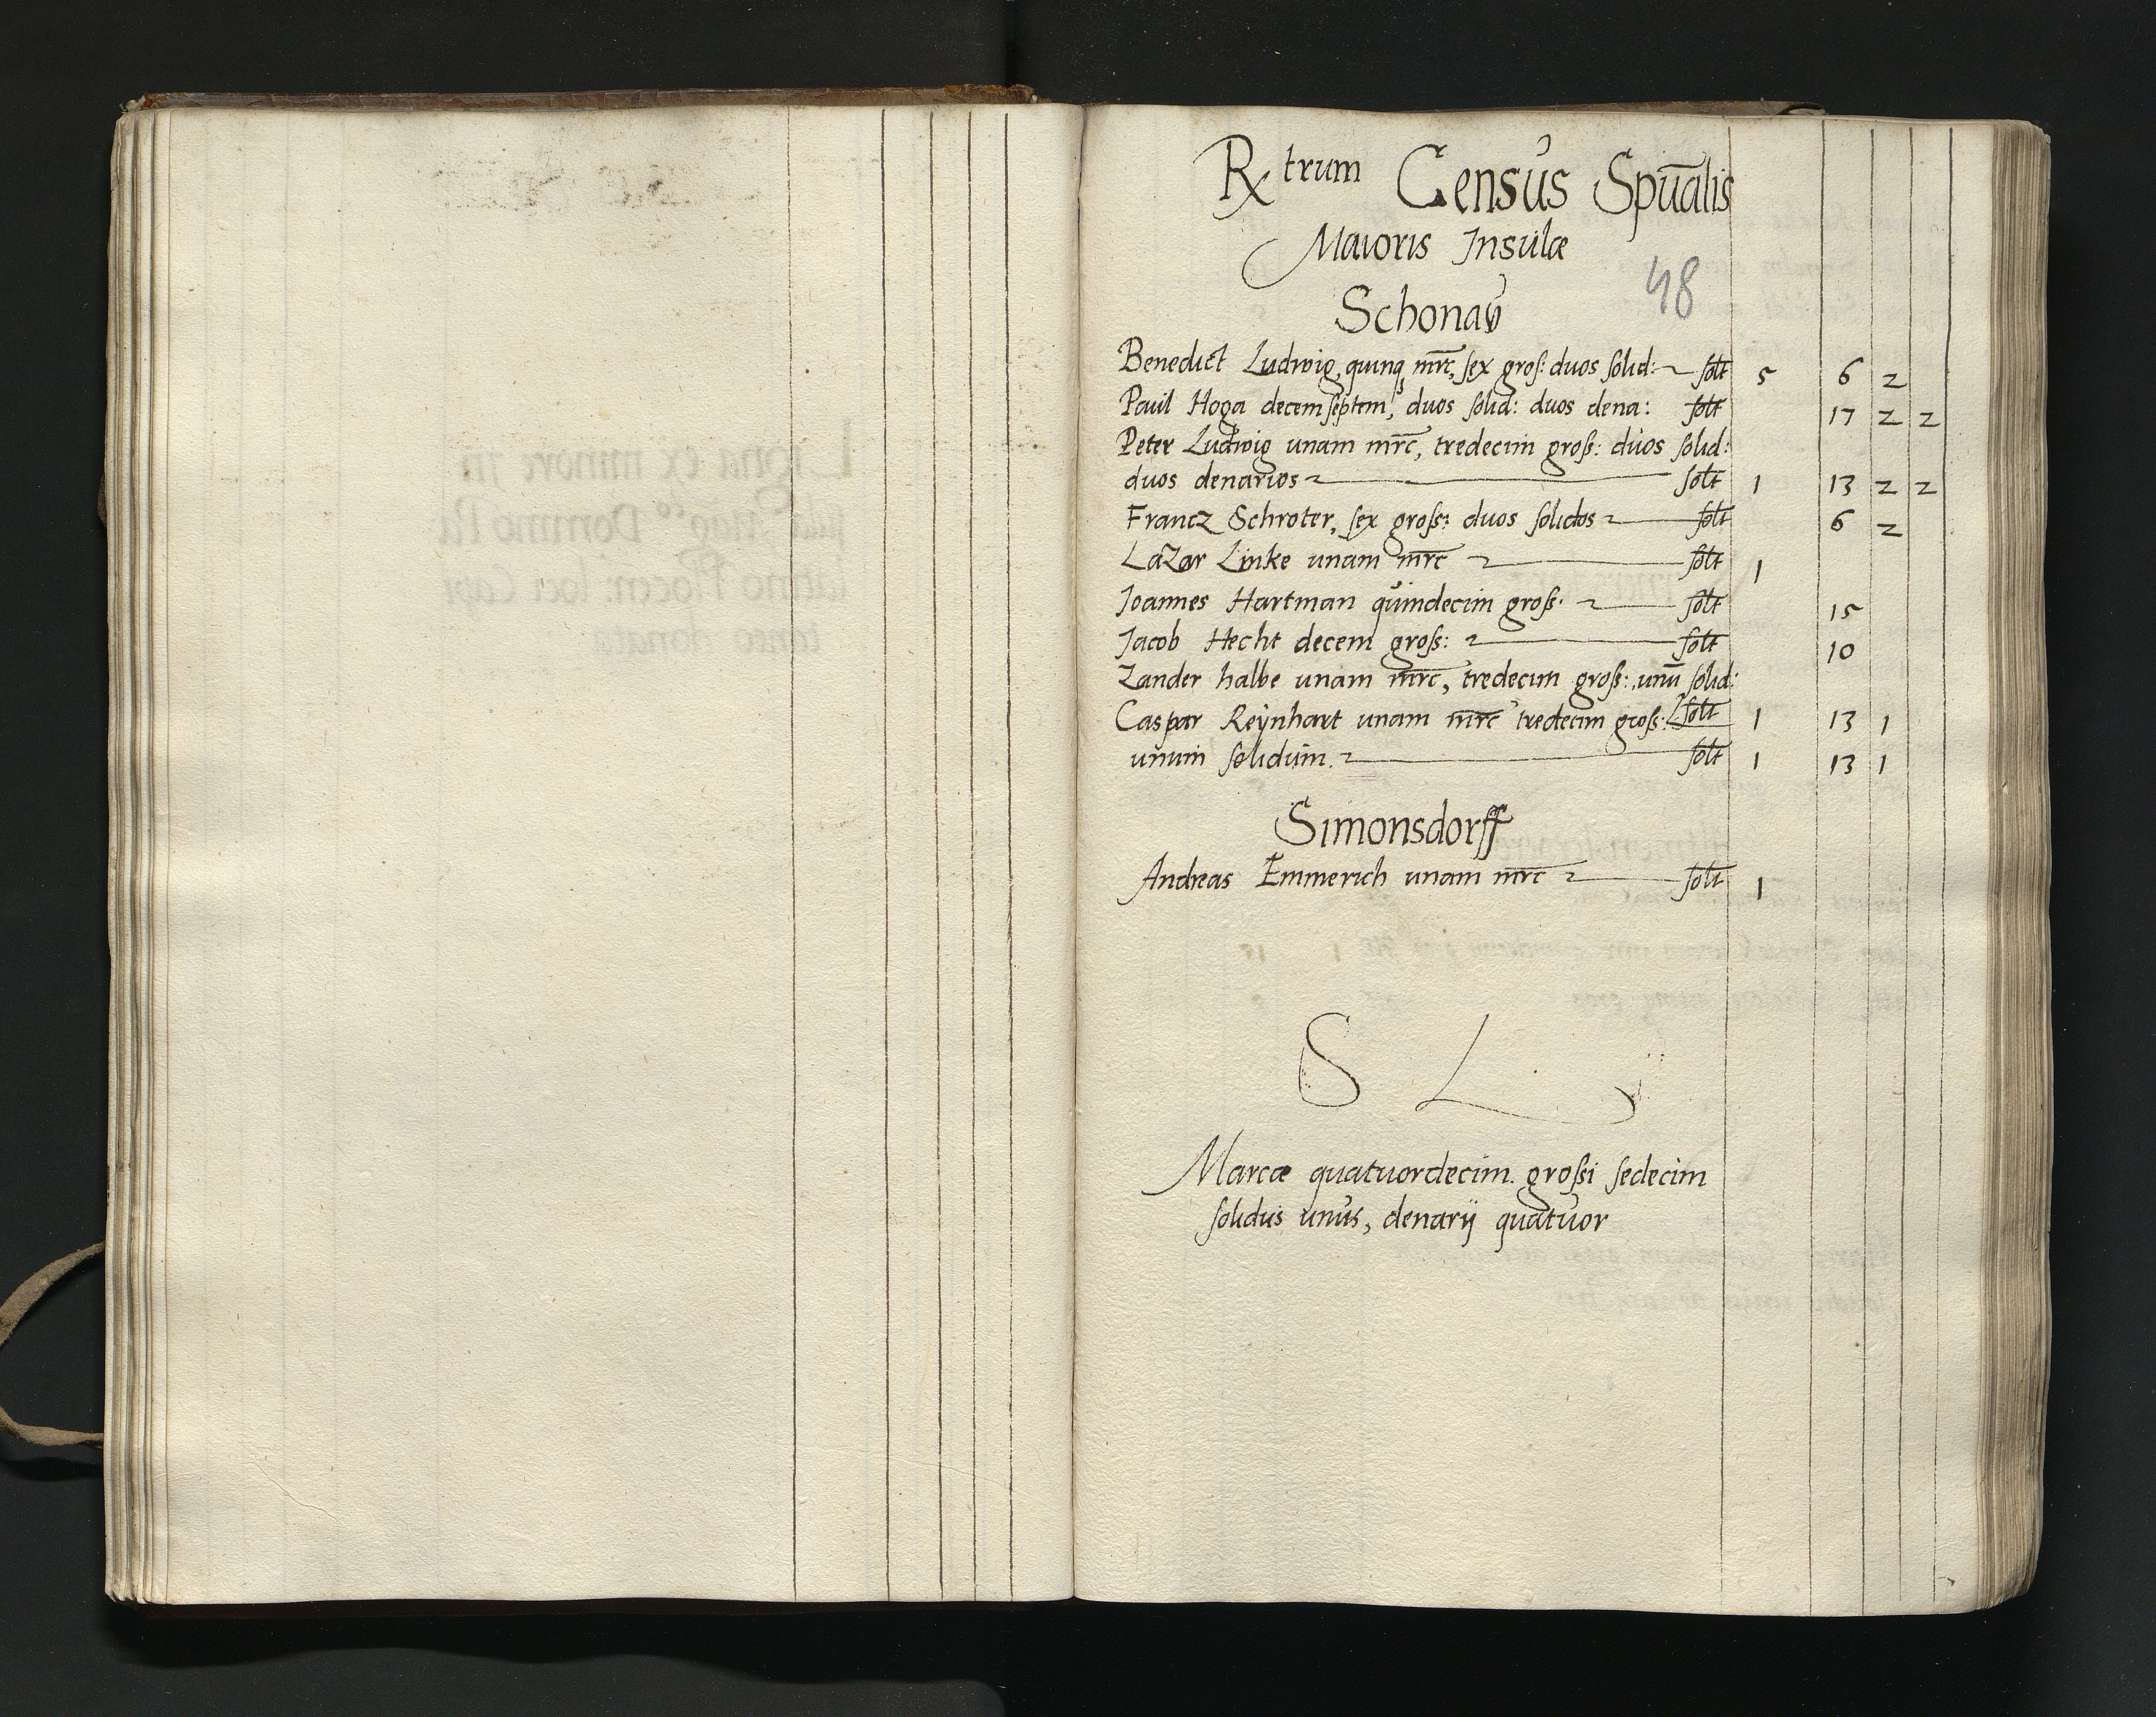 Rx trum Census Spūalis
Maioris Insulæ
48
Schonaů
Benedict Ludwig, quinq, mrc, sex gros: duos solid: solt 5 6 2
Paul Hoga decemseptem, duos solid: duos dena: solt 17 2 2
Peter Ludwig unam mrc, tredecim gross: duos solid:
duos denarios solt 1 13 2 2
Francz Schroter, sex gross: duos solidos solt 6 2
Lazar Linke unam mrc solt 1
Joannes Hartman quindecim gross: solt 15
Jacob Hecht decem gross: solt 10
Zander halbe unam mrc, tredecim gross: unū solid:
solt 1 13 1
Caspar Reÿnhart unam mrc tredecim gross:
unum solidum. solt 1 13 1
Simonsdorff
Andreas Emmerich unam mrc solt 1
S L
Marcæ quatuordecim. grossi sedecim
solidus unus, denarij quatuor